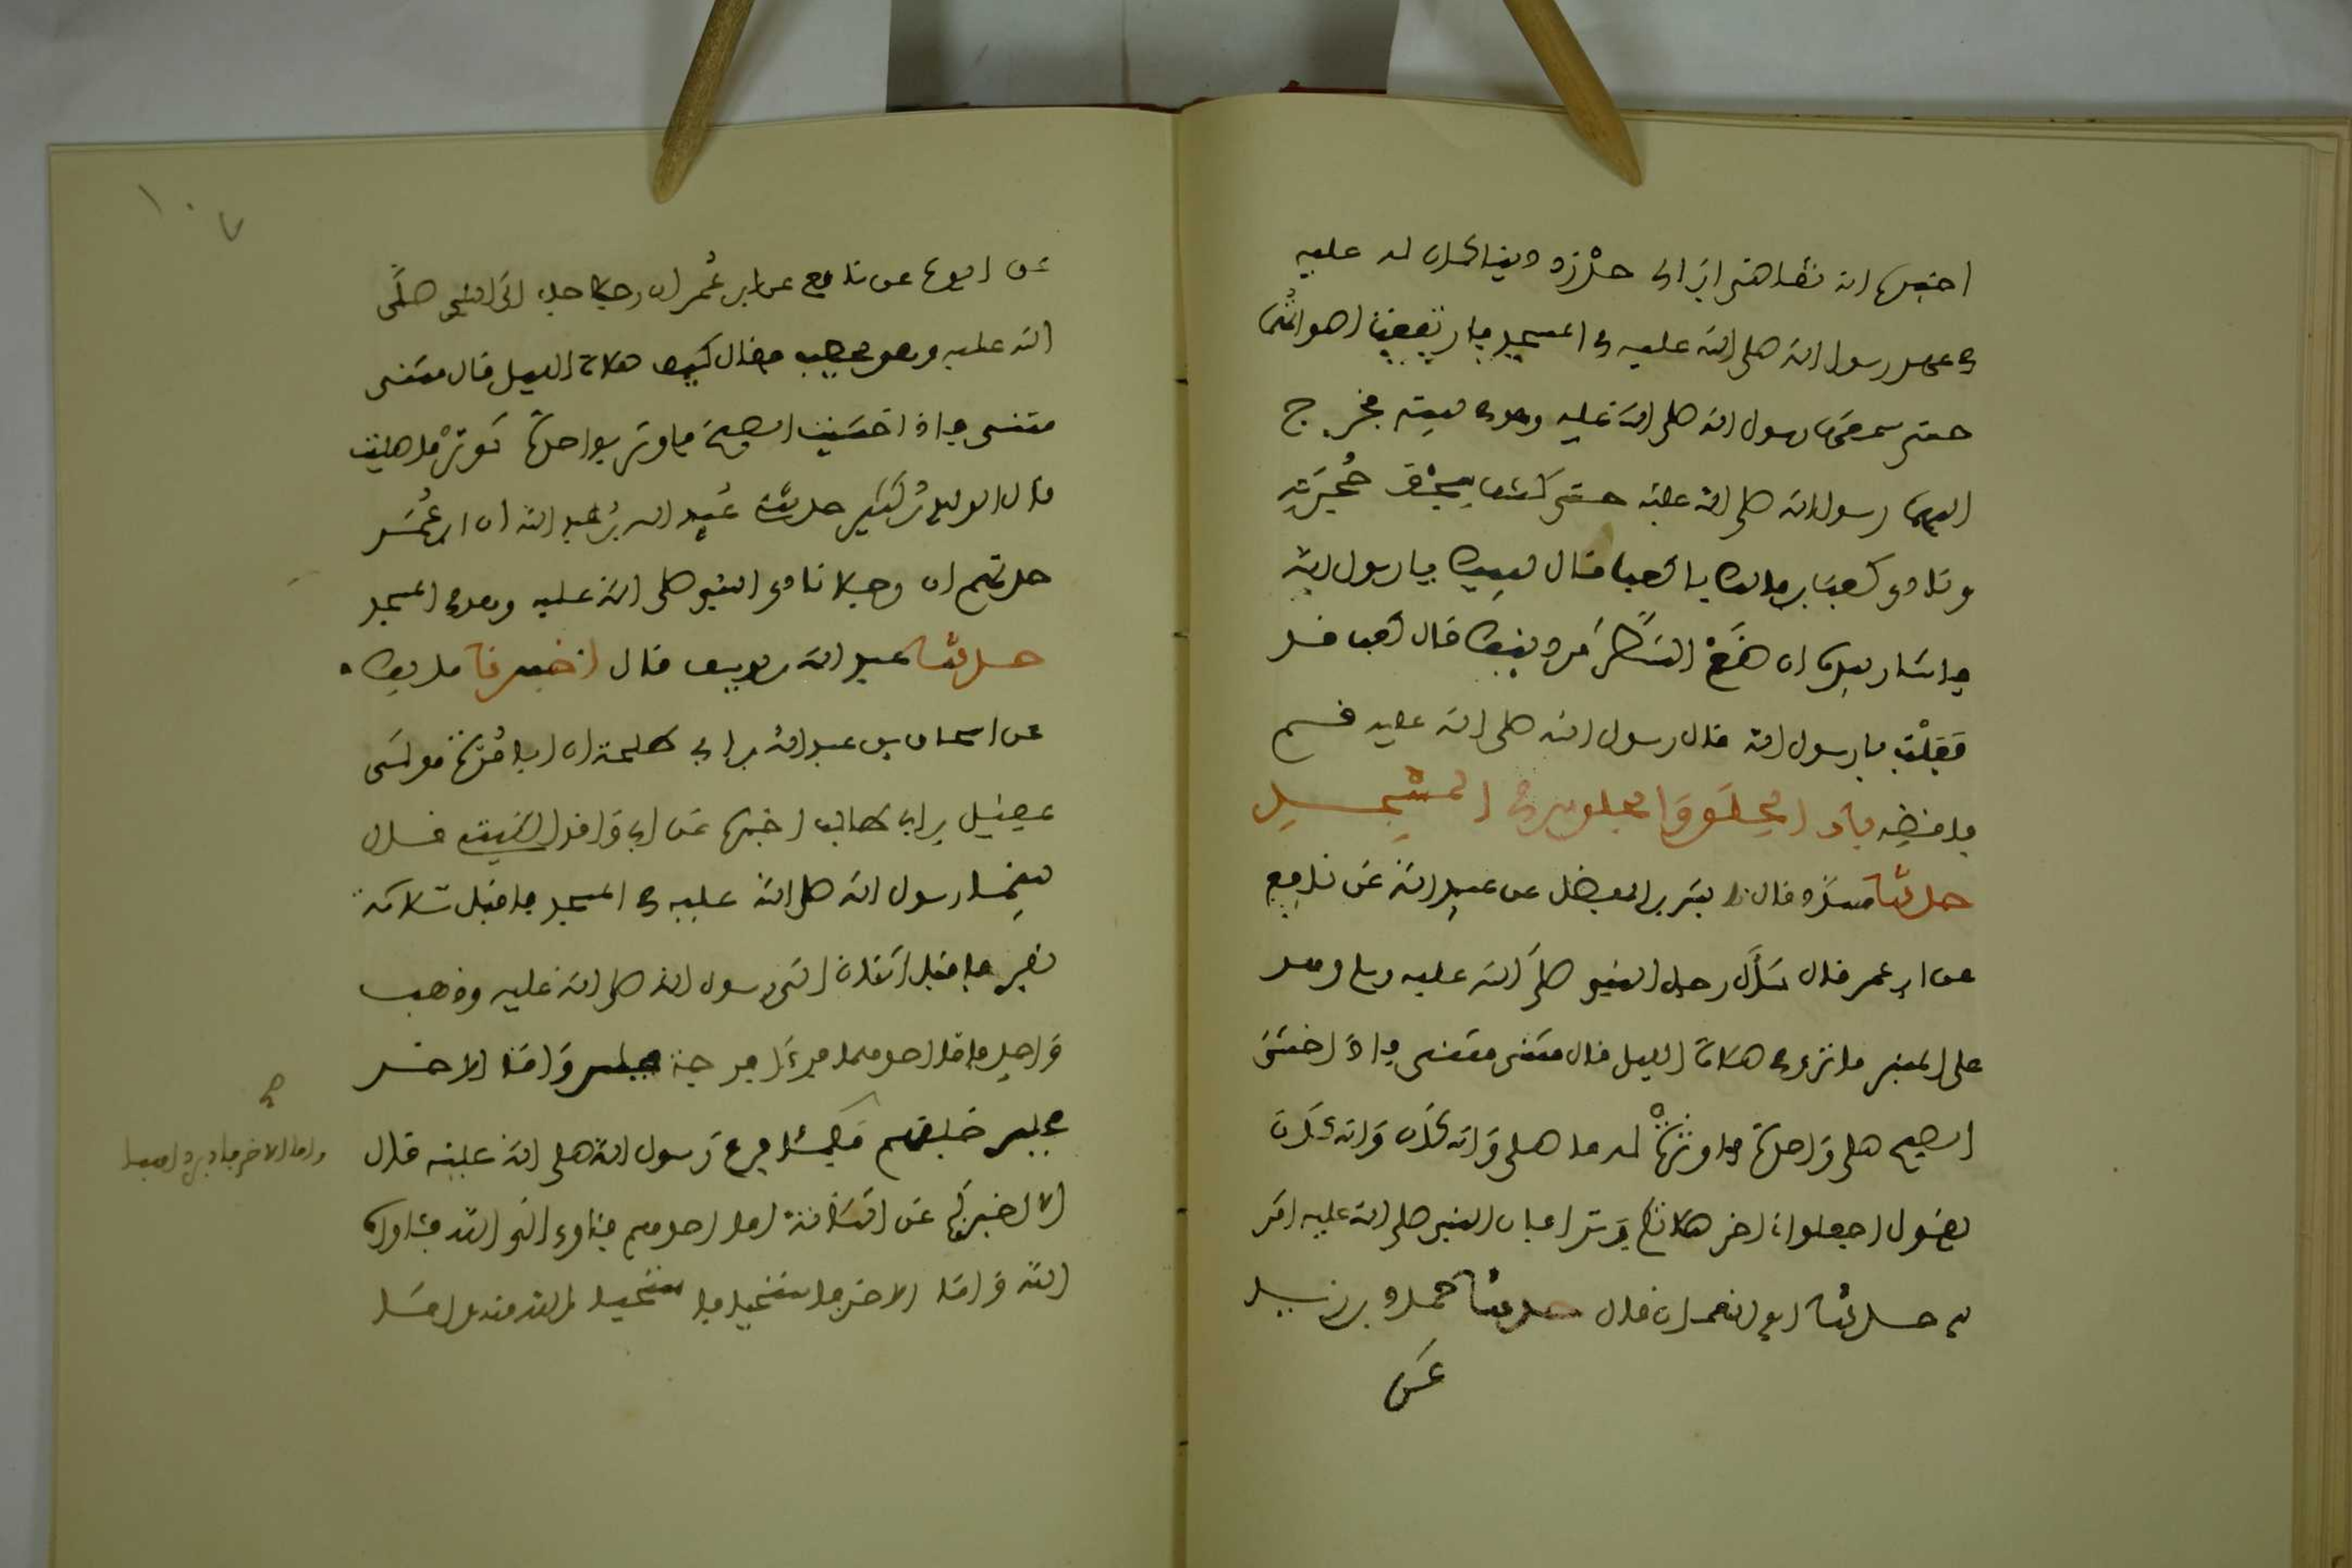 اخبره انه تقاضى ابن ابى حدرد دينا كان له عليه
فى عهد رسول الله صلى الله عليه فى المسجد فارتفعت اصواتهما
حتى سمعها رسول الله صلى الله عليه وهو فى بيته فخرج
اليهما رسول الله صلى الله عليه حتى كشف سجف حجرته
ونادى كعب بن مالك يا كعب فقال لبيك يا رسول الله
فاشار بيده ان ضع الشطر من دينك قال كعب قد
فعلت يا رسول الله قال رسول الله صلى الله عليه قم
فاقضه باب الحلق والجلوس فى المسجد
حدثنا مسدد قال نا بشر بن المفضل عن عبيد الله عن نافع
عن ابن عمر قال سأل رجل النبى صلى الله عليه وسلم وهو
على المنبر ما ترى فى صلاة الليل قال مثنى مثنى فاذا خشى
الصبح صلى واحدة فاوترت له ما صلى وانه كان
يقول اجعلوا اخر صلاتكم وترا فان النبى صلى الله عليه امر
به حدثنا ابو النعمان قال حدثنا حماد بن زيد
عن
١٠٧
عن ايوب عن نافع عن ابن عمر ان رجلا جاء الى النبى صلى
الله عليه وهو يخطب فقال كيف صلاة الليل قال مثنى
مثنى فاذا خشيت الصبح فاوتر بواحدة توتر ما صليت
قال الوليد بن كثير حدثنى عبيد الله بن عبد الله ان ابن عمر
حدثهم ان رجلا نادى النبى صلى الله عليه وهو فى المسجد
حدثنا عبد الله بن يوسف قال اخبرنا مالك
عن اسحاق بن عبد الله بن ابى طلحة ان ابا مرة مولى
عقيل بن ابى طالب اخبره عن ابى واقد الليثى قال
بينما رسول الله صلى الله عليه فى المسجد فاقبل ثلاثة
نفر فاقبل اثنان الى رسول الله صلى الله عليه وذهب
واحد فاما احدهما فرءا فرجة فجلس واما الاخر
فجلس خلفهم فلما فرغ رسول الله صلى الله عليه قال
الا اخبركم عن الثلاثة اما احدهم فاوى الى الله فئاواه
الله واما الاخر فاستحيا فاستحيا الله منه واما
واما الاخر فادبر ذاهبا
صح